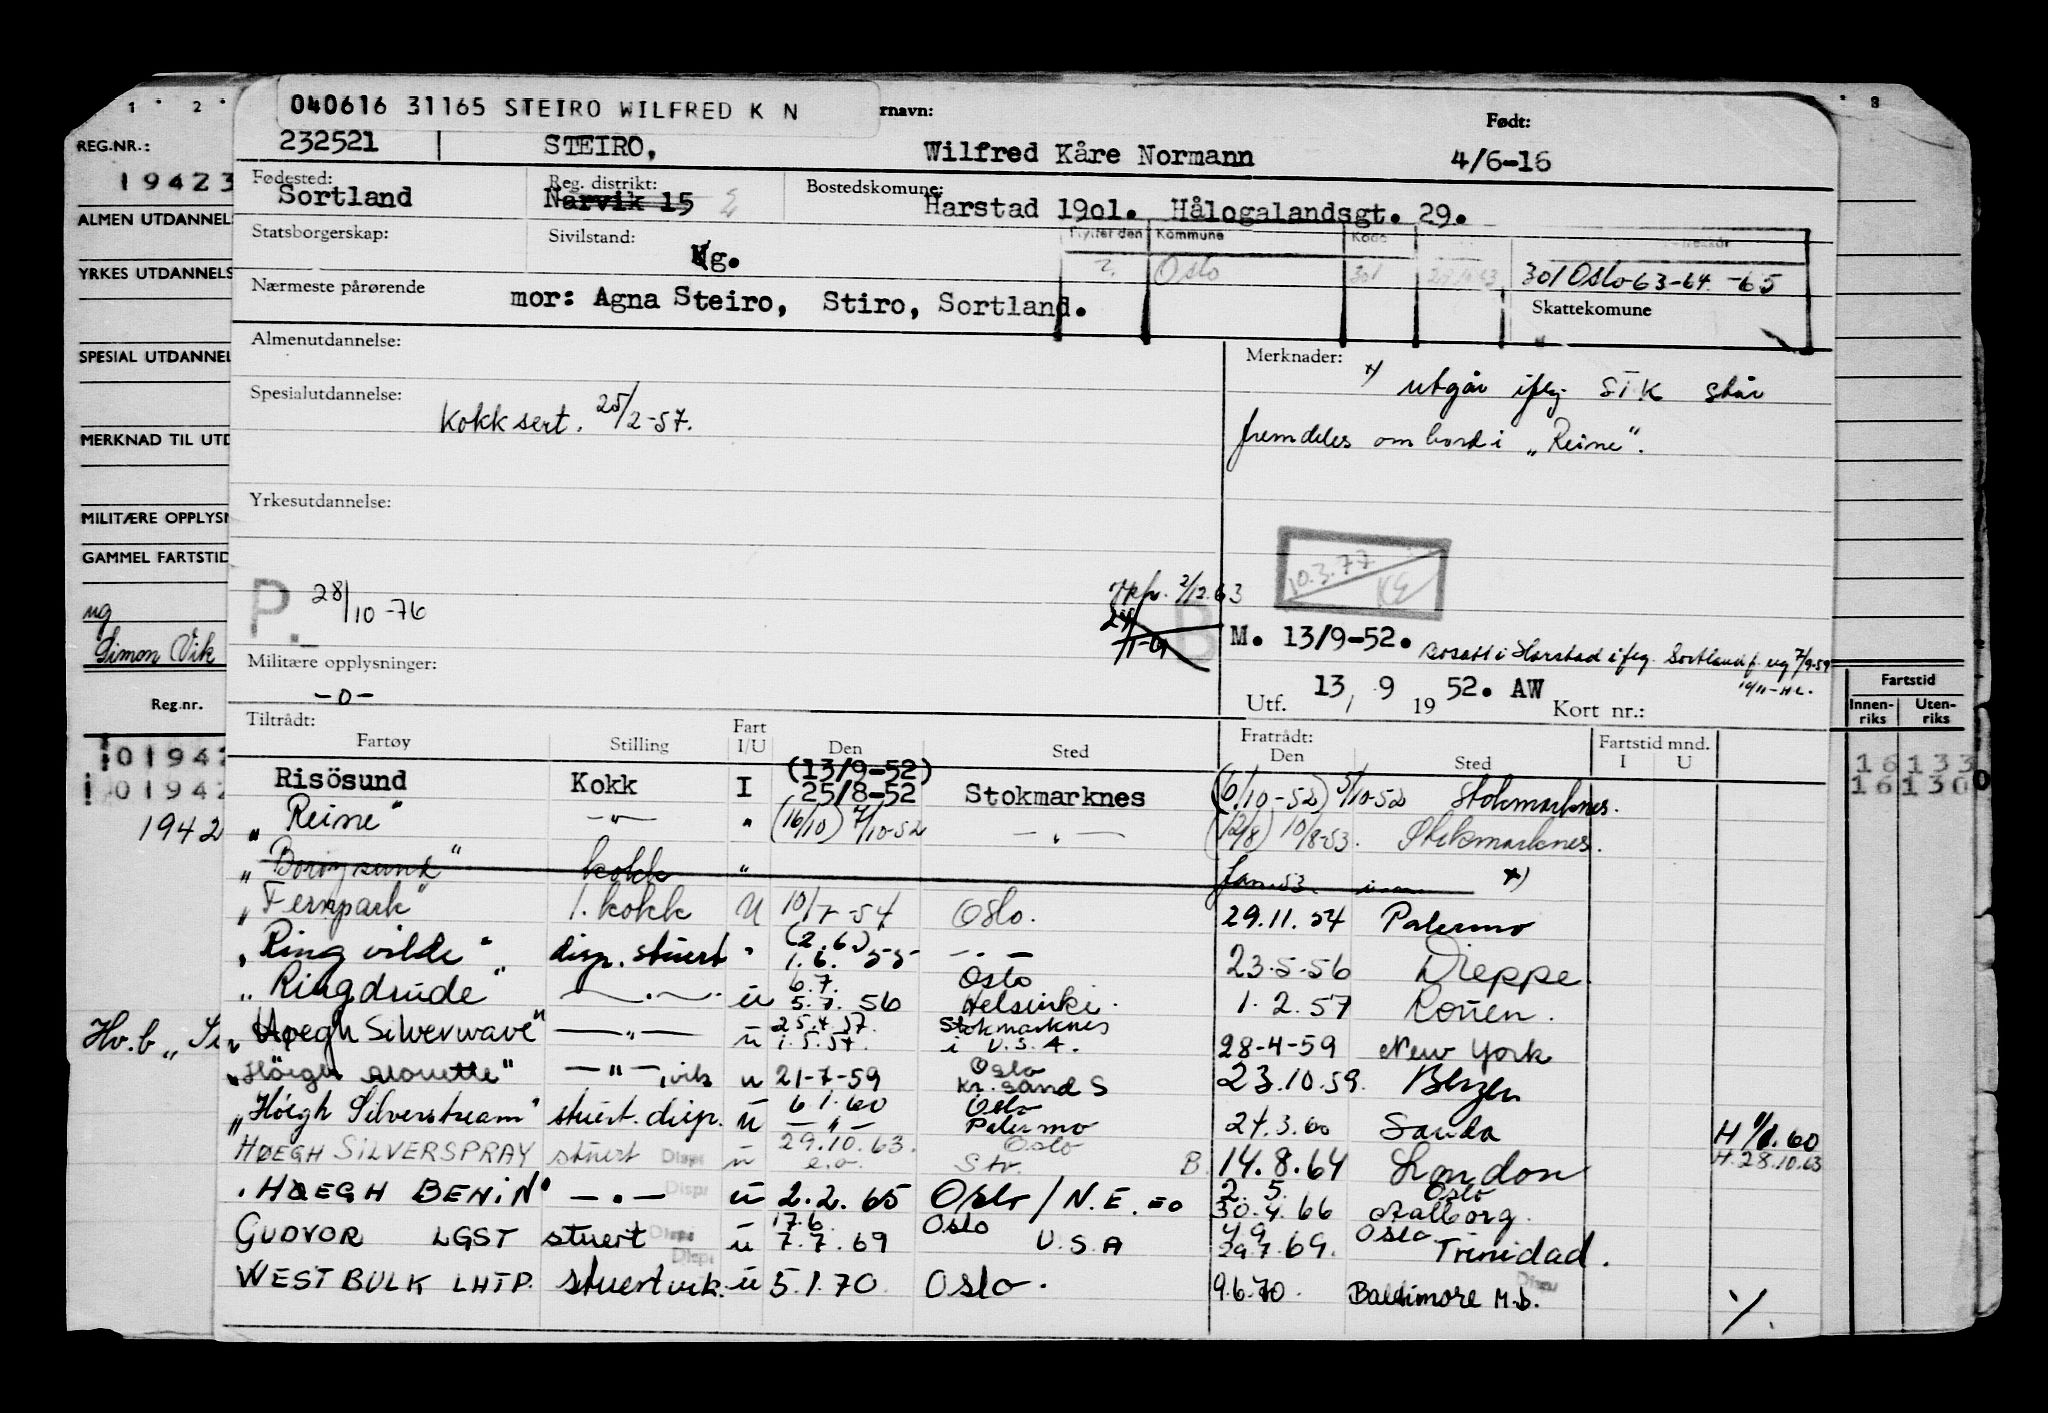 040616 31165 STEIRO WILFRED K N
rnavn:
Født:
232521 STEIRO, Wilfred Kåre Normann 4/6-16
Fødested: Reg. distrikt: Bostedskomune:
Sortland Narvik 15 Harstad 19o1. Hålogalandsgt. 29.
Statsborgerskap: Sivilstand: Kommune
Ug. Oslo 301 301 Oslo 63-64 -65
Nærmeste pårørende mor: Agna Steiro, Stiro, Sortland. Skattekomune
Almenutdannelse: Merknader:
x) utgår iflg STK står
Spesialutdannelse: Kokksert. 25/2-57.
fremdeles ombord i „Reine".
Yrkesutdannelse:
10.3.77
P. 28/10-76
2/12.63
B
M. 13/9-52. Bosatt i Harstad iflg. Sortland f. ug 7/9-59
Militære opplysninger: -0-
Utf. 13/ 9 1952. AW Kort nr.:
Tiltrådt: Fart Fratrådt: Fartstid mnd.
Fartøy Stilling I/U Den Sted Den Sted I U
Risösund Kokk I (13/9-52) 25/8-52 Stokmarknes (6/10-52) 5/10-52 Stokmarknes.
„Reine" —„— " (16/10) 7/10-52 —„— (12/8) 10/8-53. Stokmarknes.
„Borøysund" kokk " Jan. 53 x)
„Fernpark" 1. kokk U 10/7-54 Oslo. 29.11.54 Palermo
„Ringvilde" disp. stuert " (2.6.) 1.6. 55 —„— 23-5-56 Dieppe.
„Ringdrude" —„— u 6.7. 5.7. 56 Oslo Helsinki. 1.2.57 Rouen.
Høegh Silverwave" —„— u 25.4.57. 1.5.57. Stokmarknes i U.S.A. 28-4-59 New York
„Höegh Alouette" —"—, vik u 21-7-59 Oslo Kr.sand S 23.10.59. Bergen
„Höegh Silverstream" stuert. disp. u 6.1.60 —„— Oslo Palermo 27.3.60 Sauda H 1/1.60
HØEGH SILVERSPRAY stuert Disp u 29.10.63. e.o. Oslo Str. B. 14.8.64 London H.28.10.63
"HØEGH BENIN" —"— Disp u 2.2.65 Oslo / N.E. =o 2. 5. 30.4.66 Oslo Aalborg.
GUDVOR LGST stuert Disp u 17.6. 7.7.69 Oslo U.S.A 29.7.69. Oslo Trinidad.
WEST BULK LHTP. stuert vik. u 5.1.70 Oslo. 9.6.70. Baltimore M.D.
1 2 3
REG.NR.:
19423
ALMEN UTDANNELS
YRKES UTDANNELS
SPESIAL UTDANNEL
MERKNAD TIL UTD
MILITÆRE OPPLYSN
GAMMEL FARTSTID
ug
Simon Vik
Reg.nr.
01942
01942
1942
Hv.b „Sin
Fartstid
Innen-riks Uten-riks
16 133
16 130